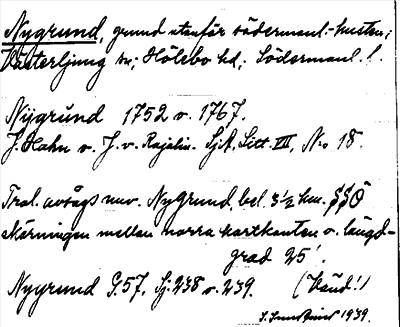 Nygrund, grund utanför södermanl.-kusten;
Västerljung sn; Hölebo hd; Södermanl. l.
Nÿgrŭnd 1752 o. 1767.
J. Hahn o. J. v. Rajalin. SjA, Litt. III, No 18.
Trol. avsågs nuv. Nygrund, bel. 3½ km. SSÖ
skärningen mellan norra kartkanten o. längd-
grad 25'.
Nygrund G.57, Sj. 238 o. 239. (Vänd!)
1939.